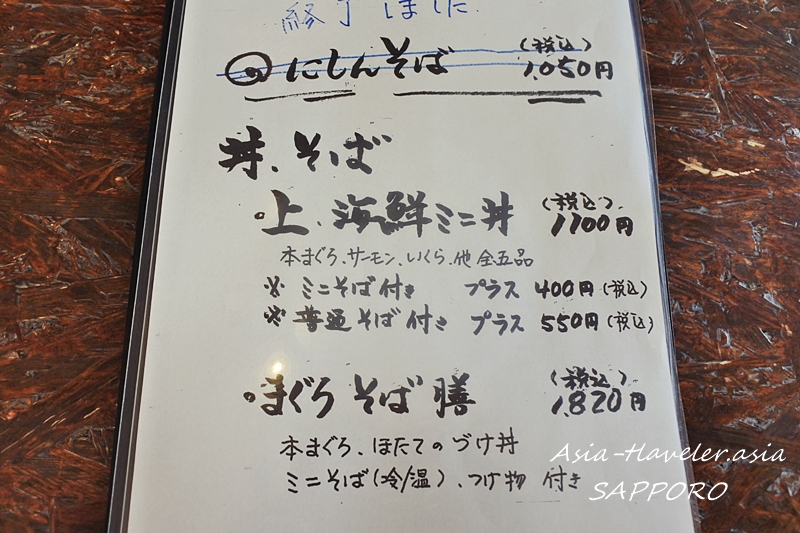 終了しました
のにしんそば (税込) 1,050円
丼、そば
・上、海鮮ミニ丼 (税込) 1,100円
本まぐろ、サーモン、いくら、他全五品
※ ミニそば付き プラス 400円(税込)
※ 普通そば付き プラス 550円(税込)
・まぐろそば膳 (税込) 1,820円
本まぐろ、ほたてのづけ丼
ミニそば(冷/温)、つけ物 付き
Asia-traveler.asia
SAPPORO